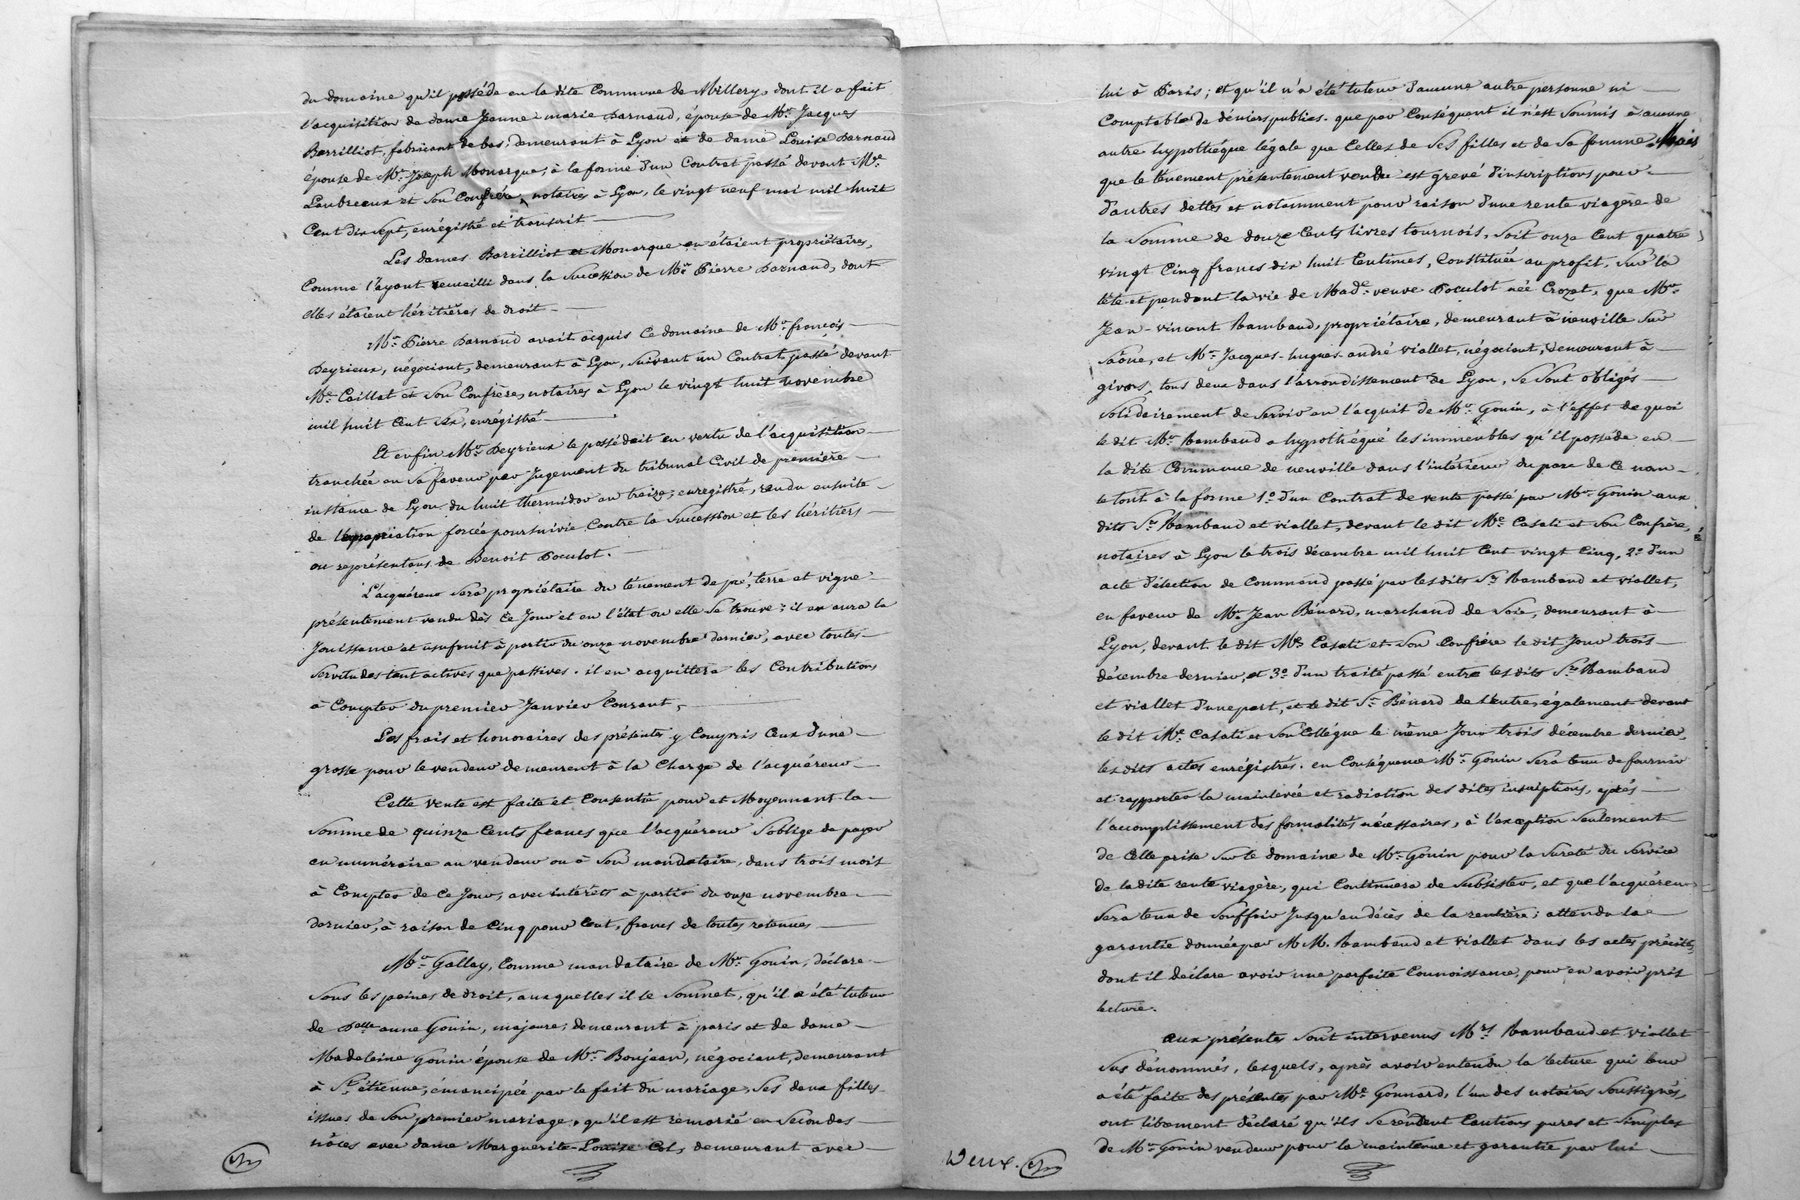 du domaine qu'il possède en la dite Commune de Millery, dont il a fait
l'acquisition de dame Jeanne-marie Darnaud, épouse de Mr. Jacques
Barrilliot, fabricant de bas, demeurant à Lyon et de dame Louise Darnaud
épouse de Mr. Joseph Monarque, à la forme d'un Contrat passé devant Me.
Laubreaux et Son Confrère, notaires à Lyon, le vingt neuf mai mil huit
Cent dix sept, enrégistré et transcrit
Les dames Barrilliot et Monarque en étaient propriétaires,
Comme l'ayant recueilli dans la Succession de Mr. Pierre Darnaud, dont
elles étaient héritières de droit.
Mr. Pierre Darnaud avait acquis Ce domaine de Mr. françois
Peyrieux, négociant, demeurant à Lyon, Suivant un Contrat passé devant
Me. Caillat et Son Confrère, notaires à Lyon le vingt huit novembre
mil huit Cent Six, enrégistré
Et enfin Mr. Peyrieux le possédait en vertu de l'acquisition
tranchée en Sa faveur par Jugement du tribunal Civil de première
instance de Lyon du huit thermidor an treize, enregistré, rendu ensuite
de l'expropriation forcée poursuivie Contre la Succession et les héritiers
ou représentans de Benoit Poculot.
L'acquéreur Sera propriétaire du tènement de pré, terre et vigne
présentement vendu dès Ce Jour et en l'état ou elle Se trouve; il en aura la
Jouissance et usufruit à partir du onze novembre dernier, avec toutes
Servitudes tant actives que passives. il en acquittera les Contributions
à Compter du premier Janvier Courant,
Les frais et honoraires des présentes y Compris Ceux d'une
grosse pour le vendeur demeurent à la Charge de l'acquéreur
Cette vente est faite et Consentie pour et Moyennant la
Somme de quinze Cents francs que l'acquéreur S'oblige de payer
en numéraire au vendeur ou à Son mandataire, dans trois mois
à Compter de Ce Jour, avec intérêts à partir du onze novembre
dernier, à raison de Cinq pour Cent, francs de toutes retenues
Mr. Gallay, Comme mandataire de Mr. Gouin, déclare
Sous les peines de droit, auxquelles il le Soumet, qu'il a été tuteur
de Dlle anne Gouin, majeure, demeurant à paris et de dame
Madeleine Gouin épouse de Mr. Boujean, négociant, demeurant
à St. étienne, émancipée par le fait du mariage, Ses deux filles
issues de Son premier mariage, qu'il est remarié en Secondes
nôces avec dame Marguerite-Louise Col, demeurant avec
lui à Paris; et qu'il n'a été tuteur d'aucune autre personne ni
Comptable de déniers publics. que par Conséquent il n'est Soumis à aucune
autre hypothéque légale que Celles de Ses filles et de Sa femme, Mais
que le tènement présentement vendu est grevé d'inscriptions pour
d'autres dettes et notamment pour raison d'une rente viagère de
la Somme de douze Cents livres tournois, Soit onze Cent quatre
vingt Cinq francs dix huit Centimes, Constituée au profit, Sur la
tête et pendant la vie de Made. veuve Poculot née Crozet, que Mr.
Jean-vincent Rambaud, propriétaire, demeurant à neuville Sur
Saône, et Mr. Jacques-hugues-andré viallet, négociant, demeurant à
givors, tous deux dans l'arrondissement de Lyon, Se Sont obligés
Solidairement de Servir en l'acquit de Mr. Gouin, à l'effet de quoi
le dit Mr. Rambaud a hypothéqué les immeubles qu'il possède en
la dite Commune de neuville dans l'intérieur du parc de Ce nom
le tout à la forme 1o. d'un Contrat de vente passé par Mr. Gouin aux
dits Srs. Rambaud et viallet, devant le dit Me. Casati et Son Confrère,
notaires à Lyon le trois décembre mil huit Cent vingt Cinq, 2o d'un
acte d'élection de Command passé par les dits Srs. Rambaud et viallet,
en faveur de Mr. Jean Bénard, marchand de Soie, demeurant à
Lyon, devant le dit Me. Casati et Son Confrère le dit Jour trois
décembre dernier, et 3o. d'un traité passé entre les dits Srs. Rambaud
et viallet d'une part, et le dit Sr. Bénard de l'autre, également devant
le dit Me. Casati et Son Collégue le même Jour trois décembre dernier,
les dits actes enrégistrés. en Conséquence Mr. Gouin Sera tenu de fournir
et rapporter la mainlevée et radiation des dites inscriptions, après
l'accomplissement des formalités nécessaires, à l'exception Seulement
de Celle prise Sur le domaine de Mr. Gouin pour la Sureté du Service
de la dite rente viagère, qui Continuera de Subsister, et que l'acquéreur
Sera tenu de Souffrir Jusqu'au décès de la rentière; attendu la
garantie donnée par MM. Rambaud et viallet dans les actes précités,
dont il déclare avoir une parfaite Connoissance, pour en avoir pris
lecture.
aux présentes Sont intervenus Mrs. Rambaud et viallet
Sus dénommés, lesquels, après avoir entendu la lecture qui leur
a été faite des présentes par Me. Gonnard, l'un des notaires Soussignés,
ont librement déclaré qu'ils Se rendent Cautions pures et Simples
de Mr. Gouin vendeur pour la maintenue et garantie par lui
Deux.